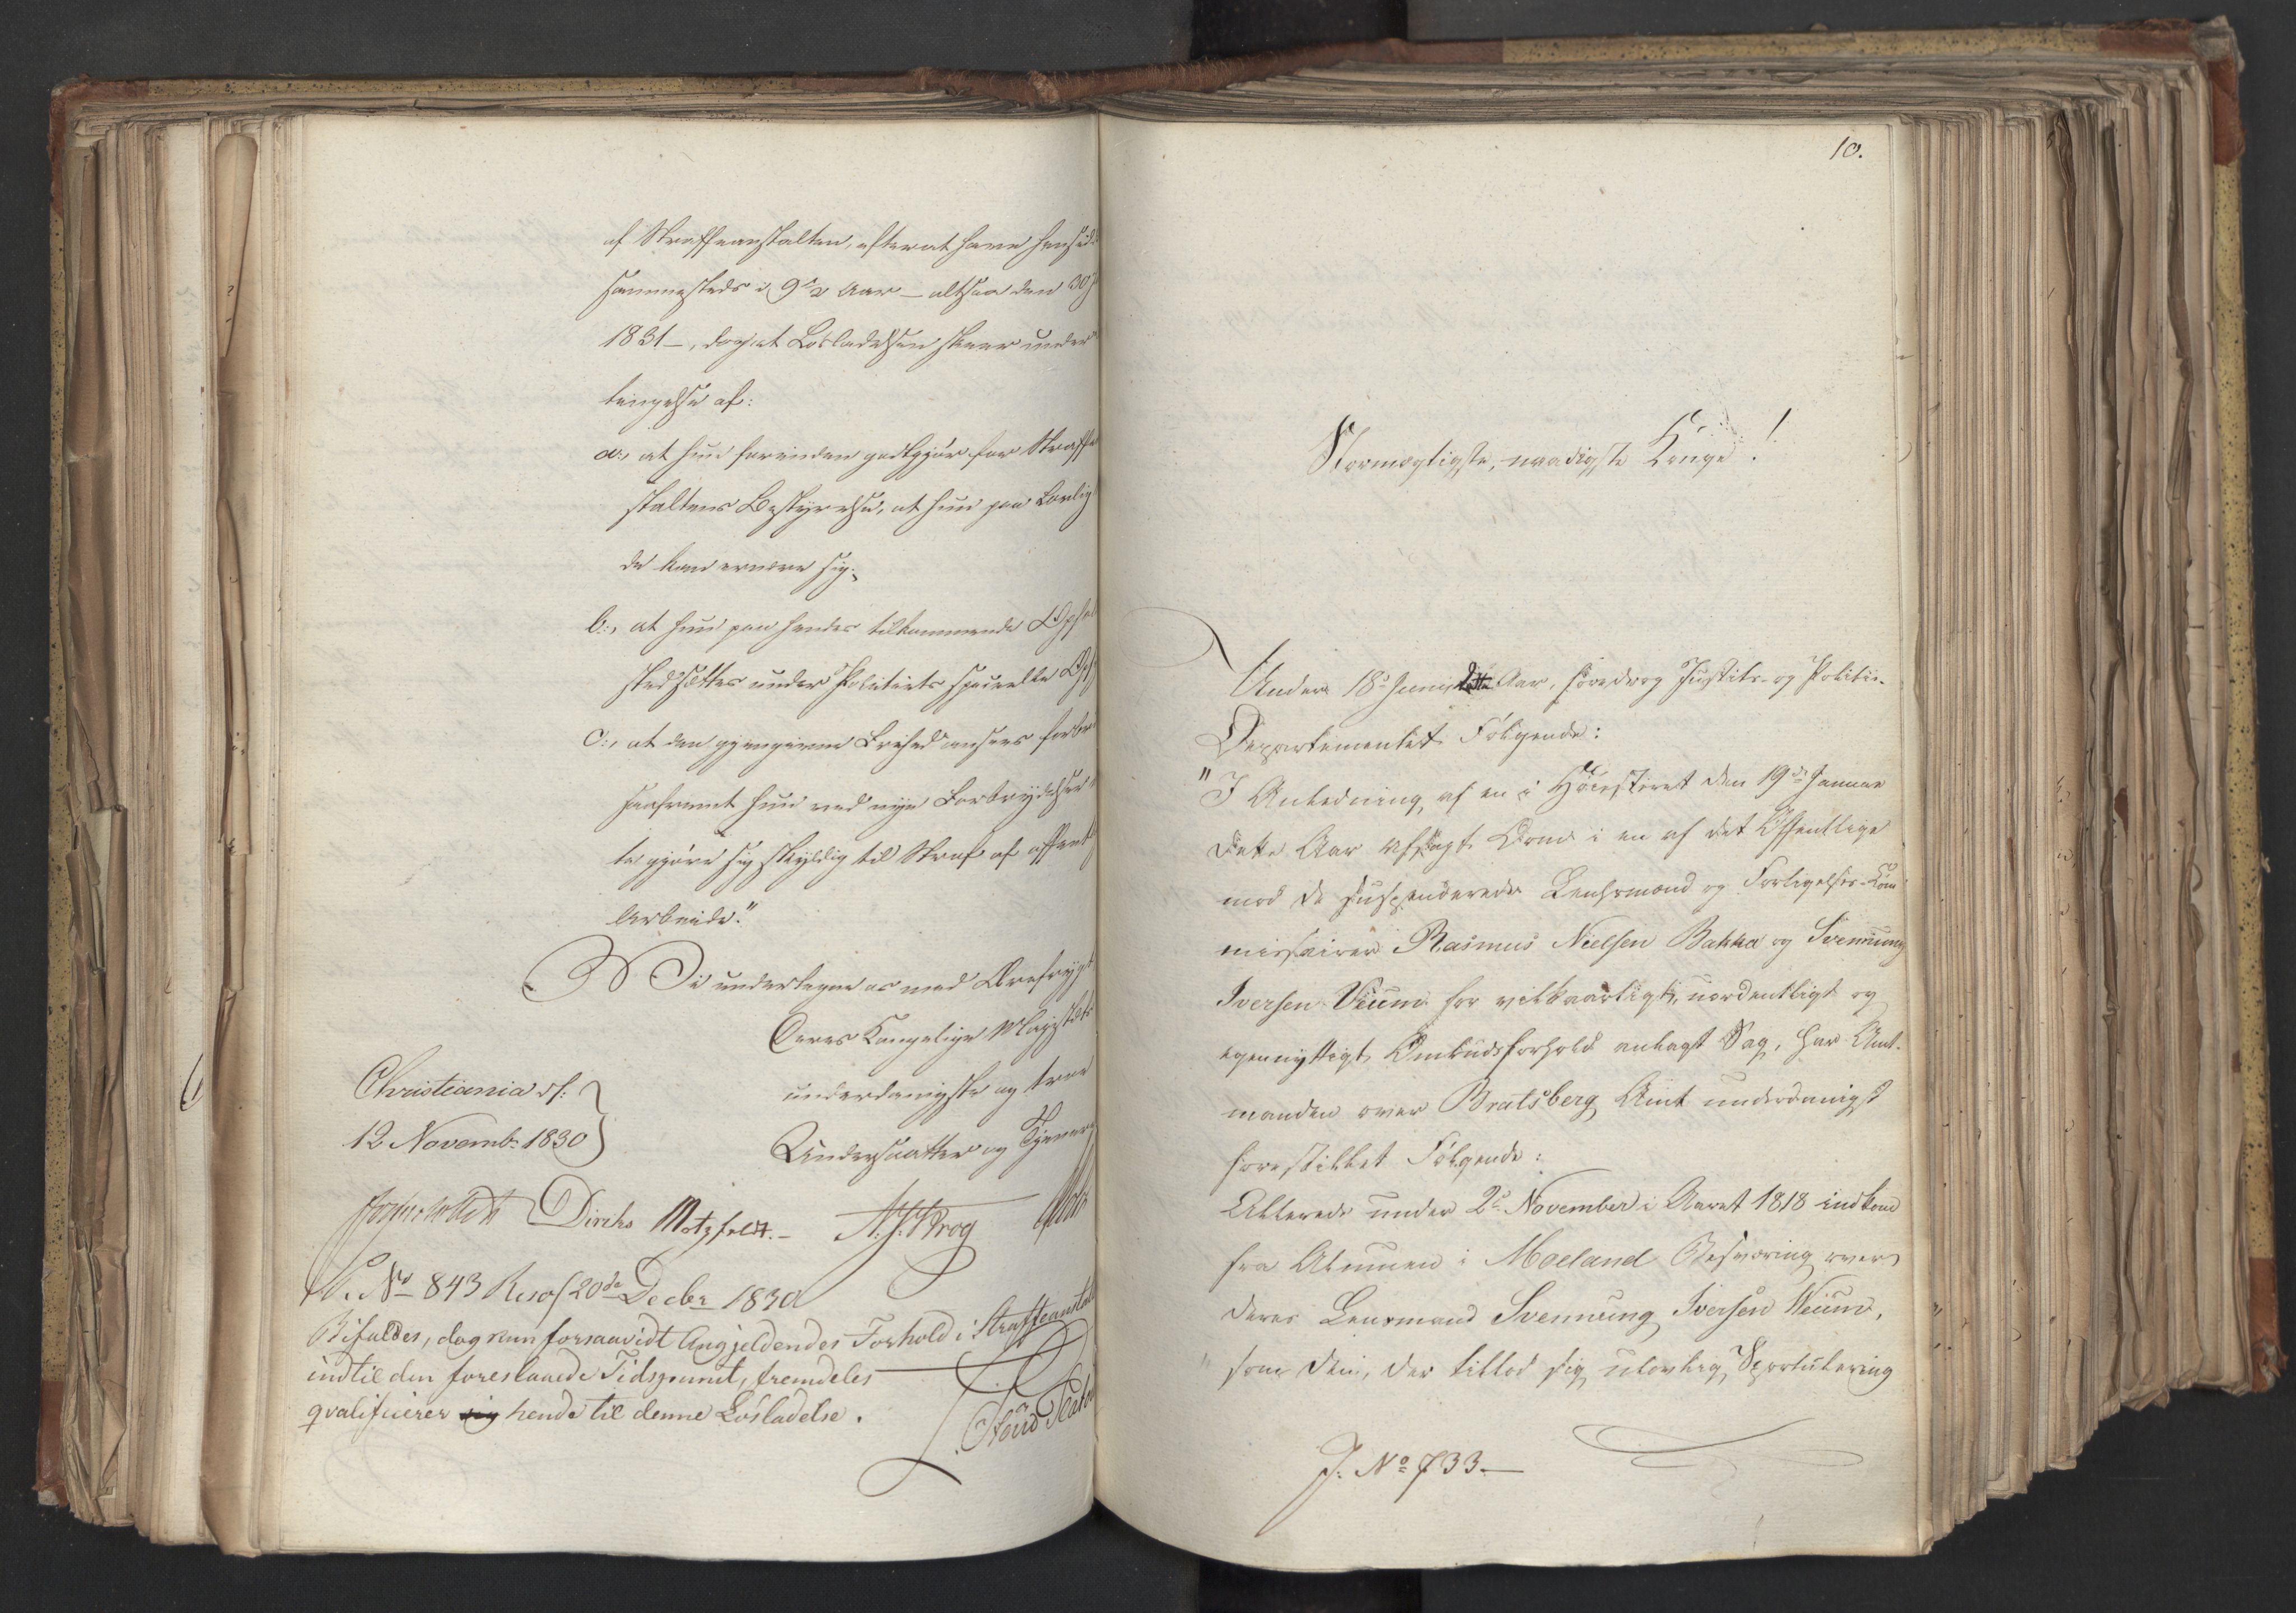 af Straffeanstalten, efterat have hensid-
sammesteds i 9 1/2 Aar – altsaa den 30
1831 –, dog at Løsladelsen skeer under
tingelse af:
a:, at hun forinden godtgjør for Straffe
staltens Bestyrelse, at hun paa Lovlig
de kan ernære sig.
b:, at hun paa hendes tilkommende Ophol
sted sættes under Politiets specielle Ops
c:, at den gjengivne Frihed ansees forbr
saafremt hun ved nye Forbrydelser
te gjøre sig skyldig til Straf af offent
Arbeide."
Vi undertegne os med Ærefrygt
Deres Kongelige Majestæts
underdanigste og troe
Undersaatter og Tjenere
Christiania d.
12 Novemb: 1830
Diriks Motzfeldt. – Krog
No 843 Resol 20de Decbr 1830
Bifaldes, dog kun forsaavidt Angjeldendes Forhold i Straffeanstalt
indtil den foreslaaede Tidspunct, fremdeles
qvalificerer sig hende til denne Løsladelse.
10.
Stormægtigste, naadigste Konge!
Under 18de Juni dette Aar, foredrog Justits- og Politie-
Departementet Følgende:
"I Anledning af en i Høiesteret den 19de Januar
dette Aar afsagt Dom i en af det Offentlige
mod de suspenderede Lensmænd og Forligelses-Com
missairer Rasmus Nielsen Bakka og Svennung
Iversen Veum for vilkaarligt, uordentligt og
egennyttigt Embedsforhold anlagt Sag, har Amt-
manden over Bratsberg Amt underdanigst
forestillet Følgende:
Allerede under 2de November i Aaret 1818 indkom
fra Almuen i Moeland Besværing over
deres Lensmand Svennung Iversen Veum,
som den, der tillod sig ulovlig Sportulering
J. No 733. –